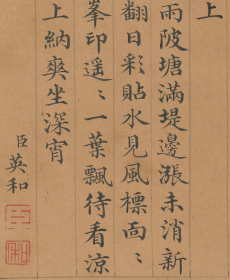 上
雨陂塘滿堤邊漲未消新
翻日彩貼水見風標面〻
峯印遥〻一葉飄待看涼
上納爽坐深宵
臣英和